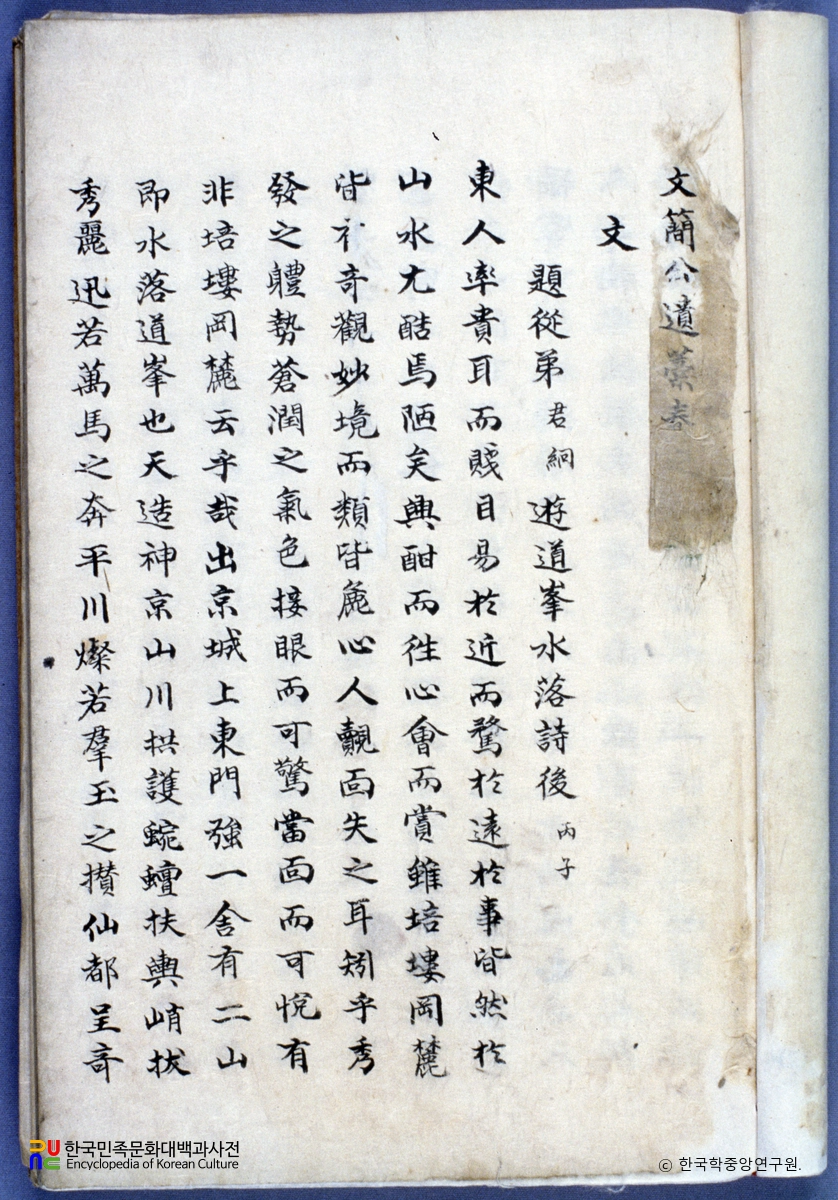 文簡公遺藁卷
文
題從弟君絅遊道峯水落詩後丙子
東人率貴耳而賤目易於近而騖於遠於事皆然於
山水尤酷焉陋矣興酣而徃心會而賞雖培塿岡麓
皆有奇觀妙境而類皆麁心人覿面失之耳矧乎秀
發之軆勢蒼潤之氣色接眼而可驚當面而可悅有
非培塿岡麓云乎哉出京城上東門強一舍有二山
即水落道峯也天造神京山川拱護蜿蟺扶輿峭拔
秀麗迅若萬馬之奔平川燦若羣玉之攅仙都呈奇
한국민족문화대백과사전
Encyclopedia of Korean Culture
© 한국학중앙연구원.